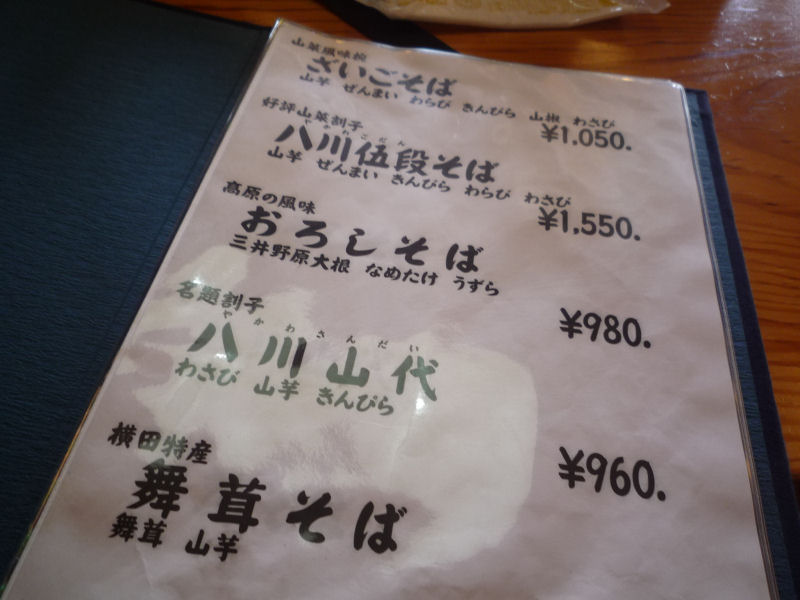 山菜風味捥
ざいごそば
山芋 ぜんまい わらび きんぴら 山椒 わさび
¥1,050.
好評山菜割子
やかわごだん
八川伍段そば
山芋 ぜんまい きんぴら わらび わさび
¥1,550.
高原の風味
おろしそば
三井野原大根 なめたけ うずら
¥980.
名題割子
やかわさんだい
八川山代
わさび 山芋 きんぴら
¥960.
横田特産
舞茸そば
舞茸 山芋